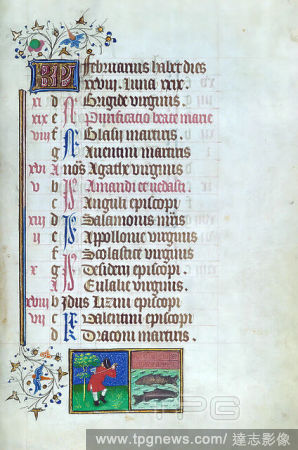 KL Februarius habet dies
xxviii. Luna xxix.
xi d N Brigide virginis
xix e Purificatio beate marie
viii f N Blasii martiris
g Aventini martiris
xvi A nōs Agathe virginis
v b Amandi et vedasti
c Anguli episcopi
xiii d Salamonis
ii e Appollonie virginis
f Scolastice virginis
x g Desiderii episcopi
A Eulalie virginis.
xviii b Idus Lizini episcopi
vii c Valentini episcopi
d Draconi martiris.
TPG
www.tpgnews.com/達志影像